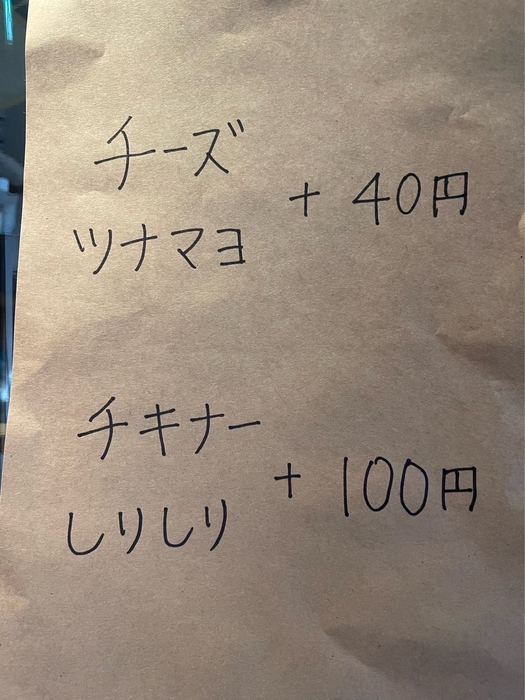 チーズ
ツナマヨ
+ 40円
チキナー
しりしり
+ 100円